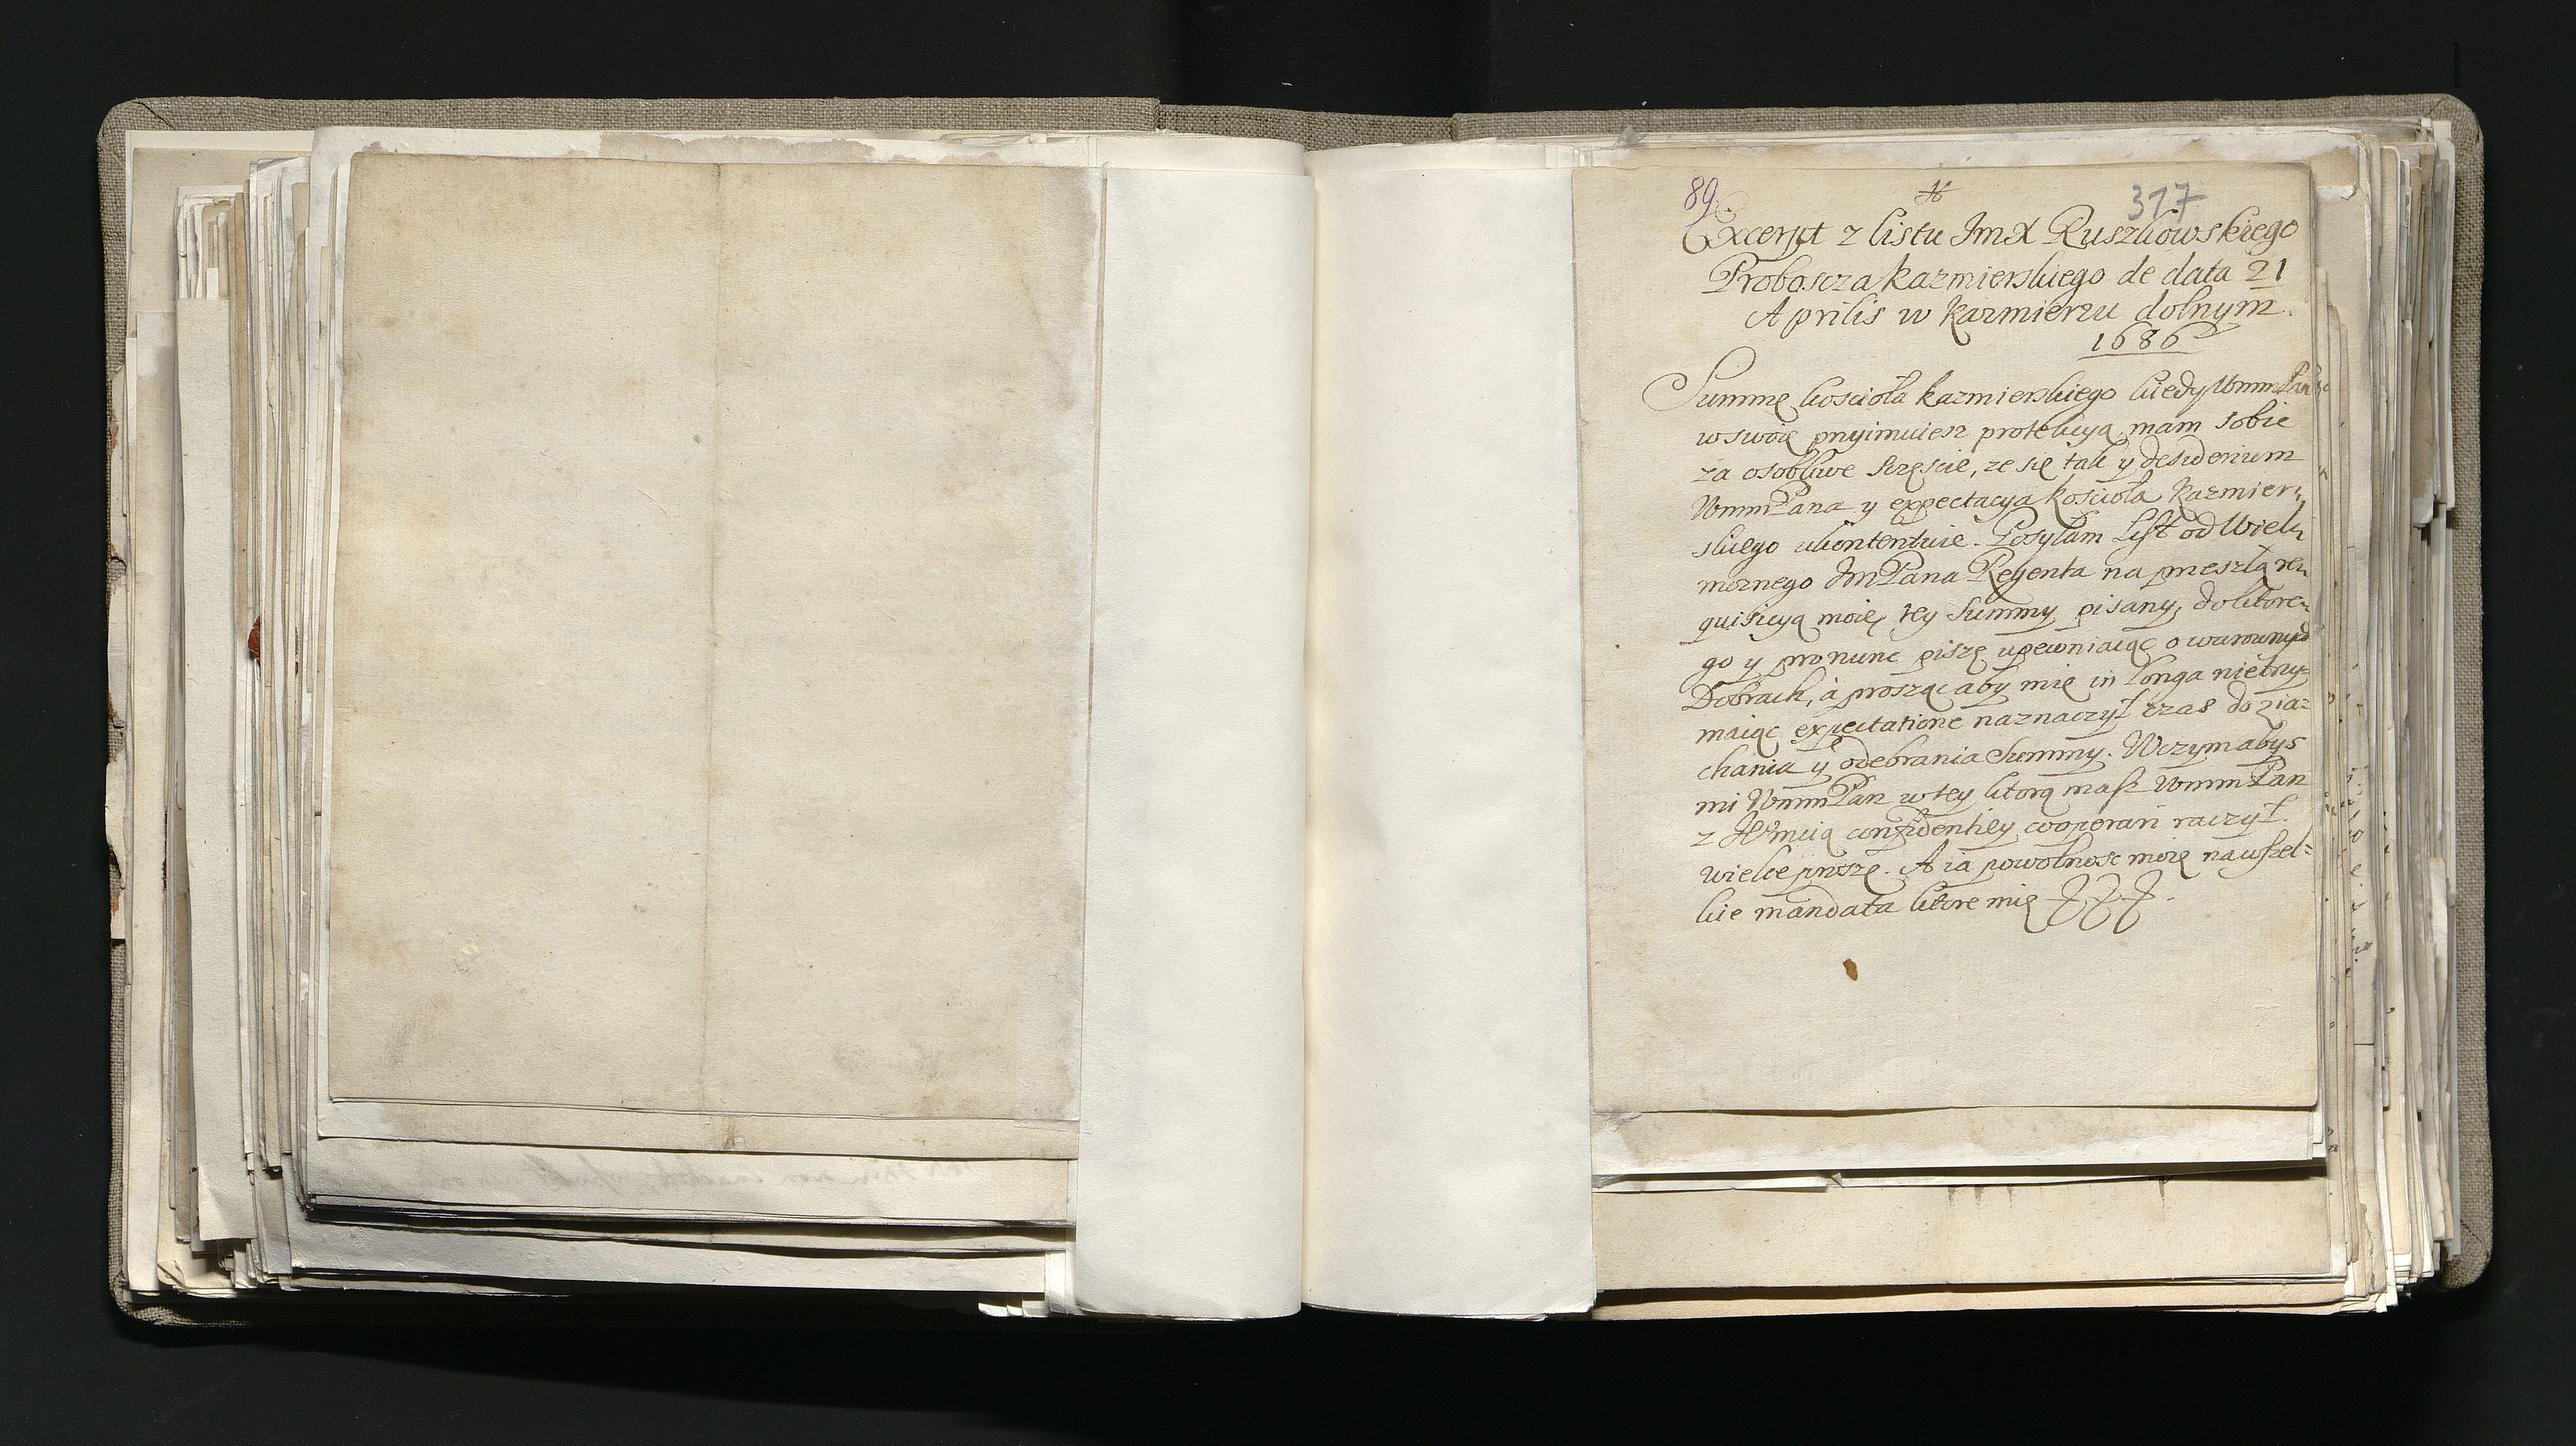 89.
317
Excerpt z listu JmX Ruszkowskiego
Proboscza kazmierskiego de data 21
Aprilis w kazmierzu dolnym.
1686
Summę kosciola kazmierskiego kiedy WmmPan
w swoię przyimuiesz protekcyą, mam sobie
za osobliwe szczęscie, ze się tak y desiderium
WmmPana y expectacya kosciola Kazmier,,
skiego ukontentuie. Posylam List od Wiel,,
moznego JmPana Regenta na przeszłą re,,
quisicyą moię tey Summy pisany, do ktore-
go y pro nunc piszę upewniaiąc o warownych
Dobrach, à prosząc aby mię in longa nietrzy-
maiąc expectatione naznaczył czas do zia-
chania y odebrania Summy. W czym abys
mi WmmPan w tey ktorą masz WmmPan
z Jmcią confidentiey cooperari raczył.
wielce proszę. A ia powolnosc moię na wszel-
kie mandata ktore mię